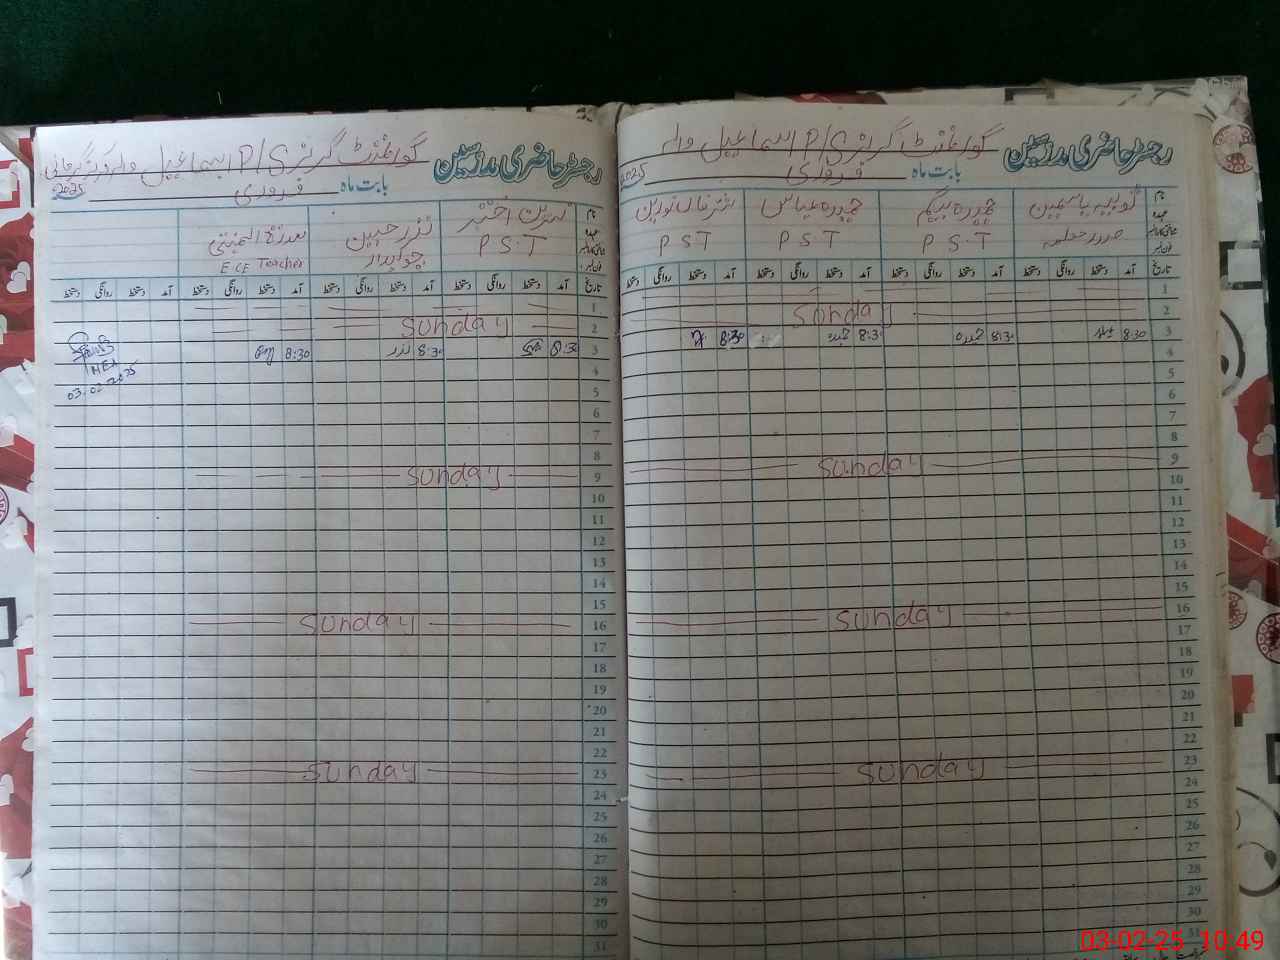 رجسٹر حاضری مدرسین گورنمنٹ گرلز P/S اسماعیل والہ
بابت ماہ فروری 2025
نام ثوبیہ یاسمین حمیدہ بیگم حمیدہ عباس
عہدہ صدر معلمہ P.S.T P.S.T P S T
تاریخ آمد دستخط روانگی دستخط آمد دستخط روانگی دستخط آمد دستخط روانگی دستخط آمد دستخط روانگی دستخط
1
2 Sunday
3 8:30 8:30 حمیدہ 8:30 8:30
4
5
6
7
8
9 Sunday
10
11
12
13
14
15
16 Sunday
17
18
19
20
21
22
23 Sunday
24
25
26
27
28
29
30
31
رجسٹر حاضری مدرسین گورنمنٹ گرلز P/S اسماعیل والہ
بابت ماہ فروری 2025
نام نسرین اختر نذر حسین سدرۃ المنتہیٰ
عہدہ P.S.T چوکیدار ECE Teacher
تاریخ آمد دستخط روانگی دستخط آمد دستخط روانگی دستخط آمد دستخط روانگی دستخط آمد دستخط روانگی دستخط
1
2 Sunday
3 8:30 8:30 نذر 8:30
MEA
4
03.02.2025
5
6
7
8
9 Sunday
10
11
12
13
14
15
16 Sunday
17
18
19
20
21
22
23 Sunday
24
25
26
27
28
29
30
31
03-02-25 10:49